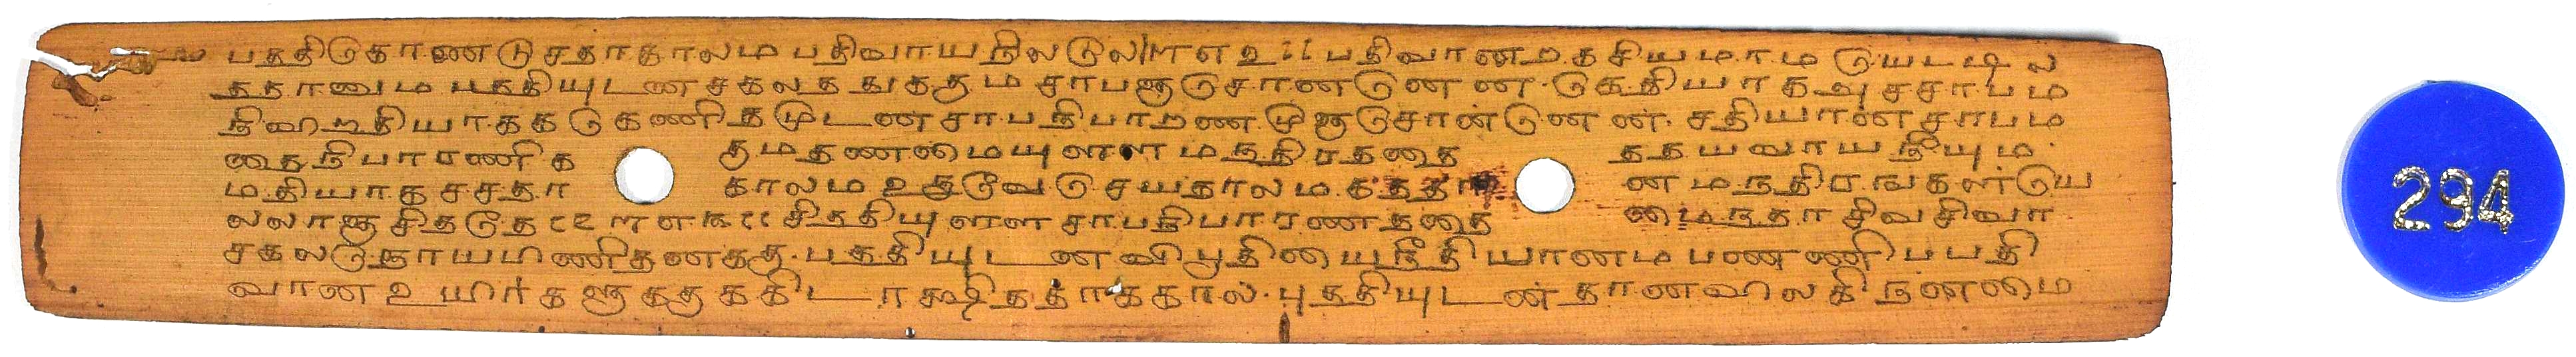 பததிகொணடு சதாகாலம பதிவாய நிலலு ௱௭௨ பதிவான ரகசியமாம யெடடில
ததானும பததியுடன சகலததுககும சாபஞ சொனனென கெதியாக அசசாபம
நிவறதியாகக கெணிதமுடன சாபநிபாறண முஞசொன்னென் சதியான சாபம
தைநிபாரணித துமதணமையுளளம நதிரததை ததயவாயநீயும
மதியாத சசதா காலம உருவெ செயதாலம கததா ன மநதிரஙகள்யெ
லலாஞசிததெ ௱௭௩ சிததியுளள சாபநிபாரணததை மைநதா சிவசிவா
சகலநொயமணிதனககு பததியுடன விபூதியை நீதியானம பணணிபபதி
வான உயிர்களுகதுககிட ரகஷிததாககால புததியுடன்தானவிலகி நனமை
294